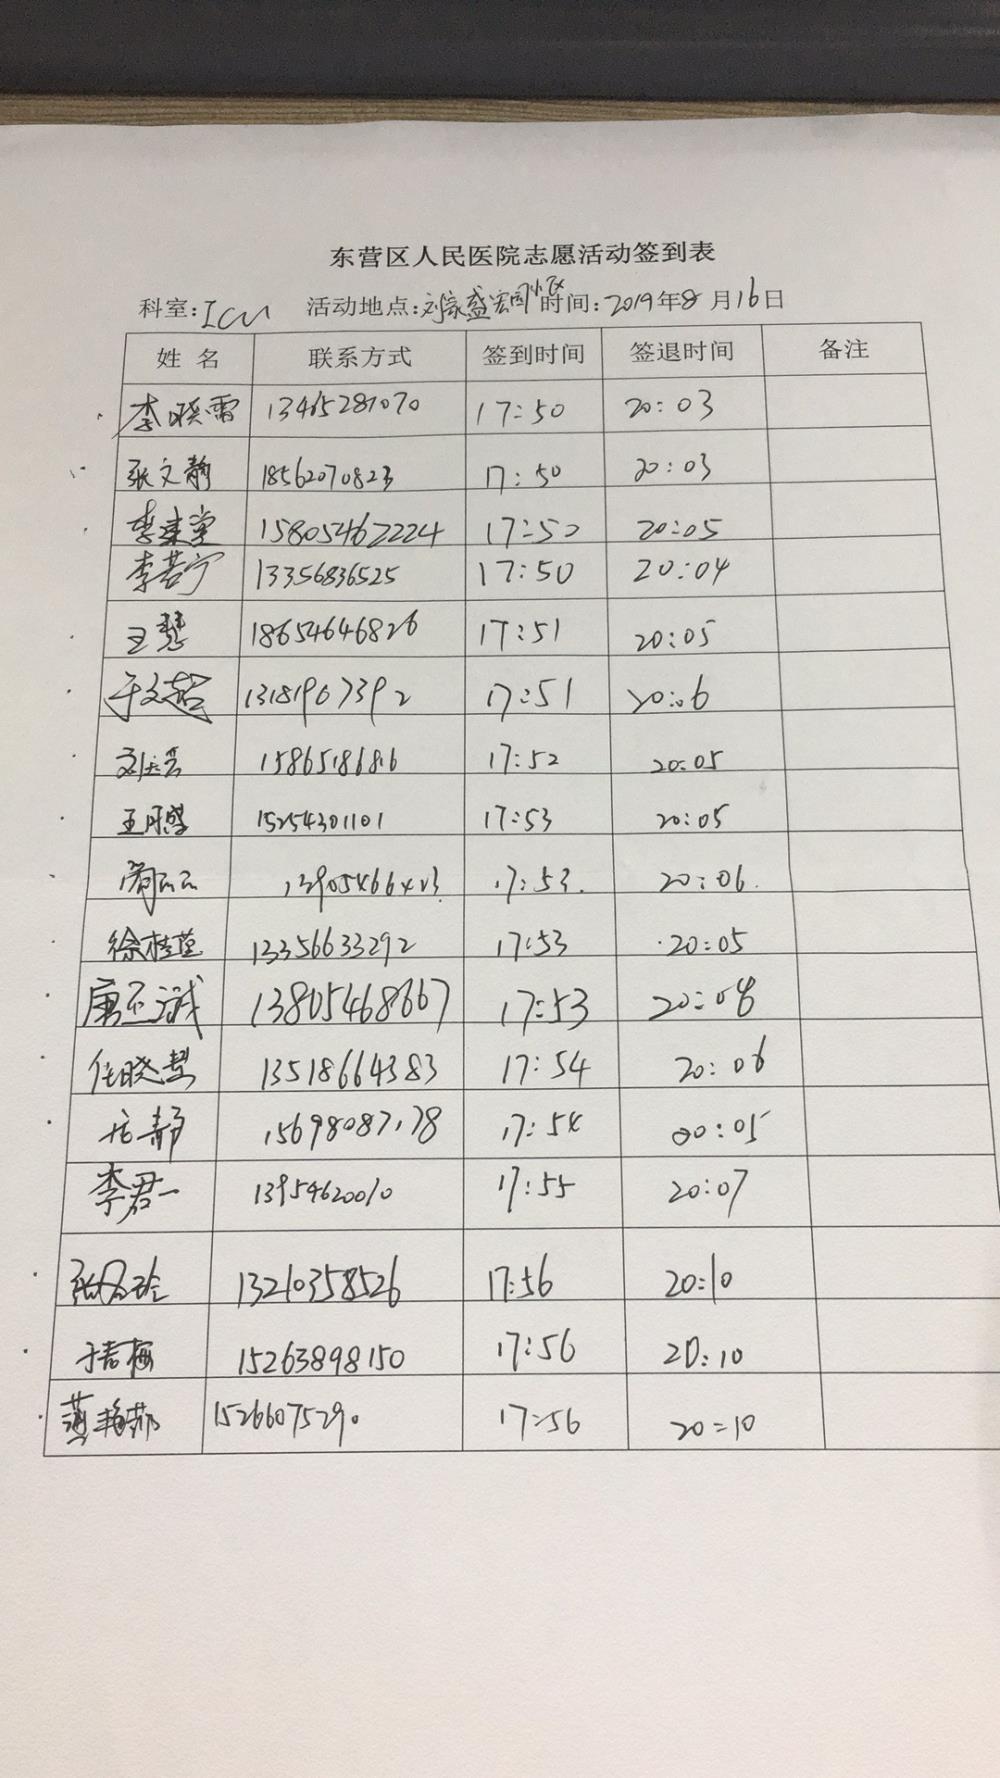 东营区人民医院志愿活动签到表
科室: ICU 活动地点: 刘家盛宏园小区 时间: 2019年8月16日
姓名 联系方式 签到时间 签退时间 备注
李晓雷 13465281070 17:50 20:03
张文静 18562070823 17:50 20:03
李建堂 15805462224 17:50 20:05
李若宁 13356836525 17:50 20:04
王慧 18654646826 17:51 20:05
于文超 13181907392 17:51
17:52 20:05
15254301101 17:53 20:05
17:53. 20:06.
徐桂莲 13356633292 17:53 20:05
唐丕诚 13805468667 17:53 20:08
任晓慧 13518664383 17:54 20:06
静 15698087178 17:54 20:05
李君一 13954620010 17:55 20:07
13210358526 17:56 20:10
15263898150 17:56 20:10
15266075290 17:56 20:10